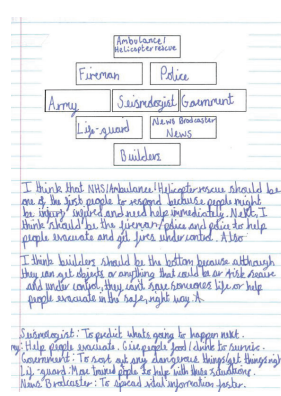 Ambulance/
Helicopter rescue
Fireman Police
Army Seismologist Goernment
Life-guard News Brodcaster
News
Builders
I think that NHS/Ambulance/Helicopter rescue should be
one of the first people to respond because people might
be injury injured and need help immediately. Next, I
think should be the fireman/police and police to help
people evacuate and get fires under control. Also
I think builders should be the bottom because although
they can get objects or anything that could be at risk secure
and under control, they can't save someones life or help
people evacuate in the safe, right way. A
Seismologist: To predict whats going to happen next.
my: Help people evacuate. Give people food/drink to survive.
Government: To sort out any dangerous things/get things right
Life-guard: More trained people to help with these situations.
News Brodcaster: To spread vital information faster.